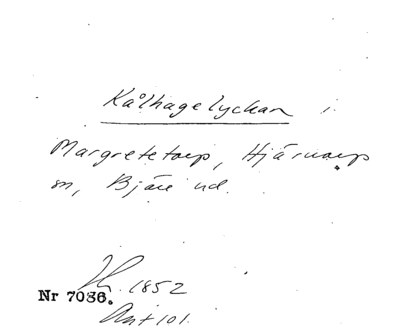 Kålhagelyckan i
Margretetorp, Hjärnarp
sn, Bjäre hd.
1852
Nr 7036.
Ant 101.